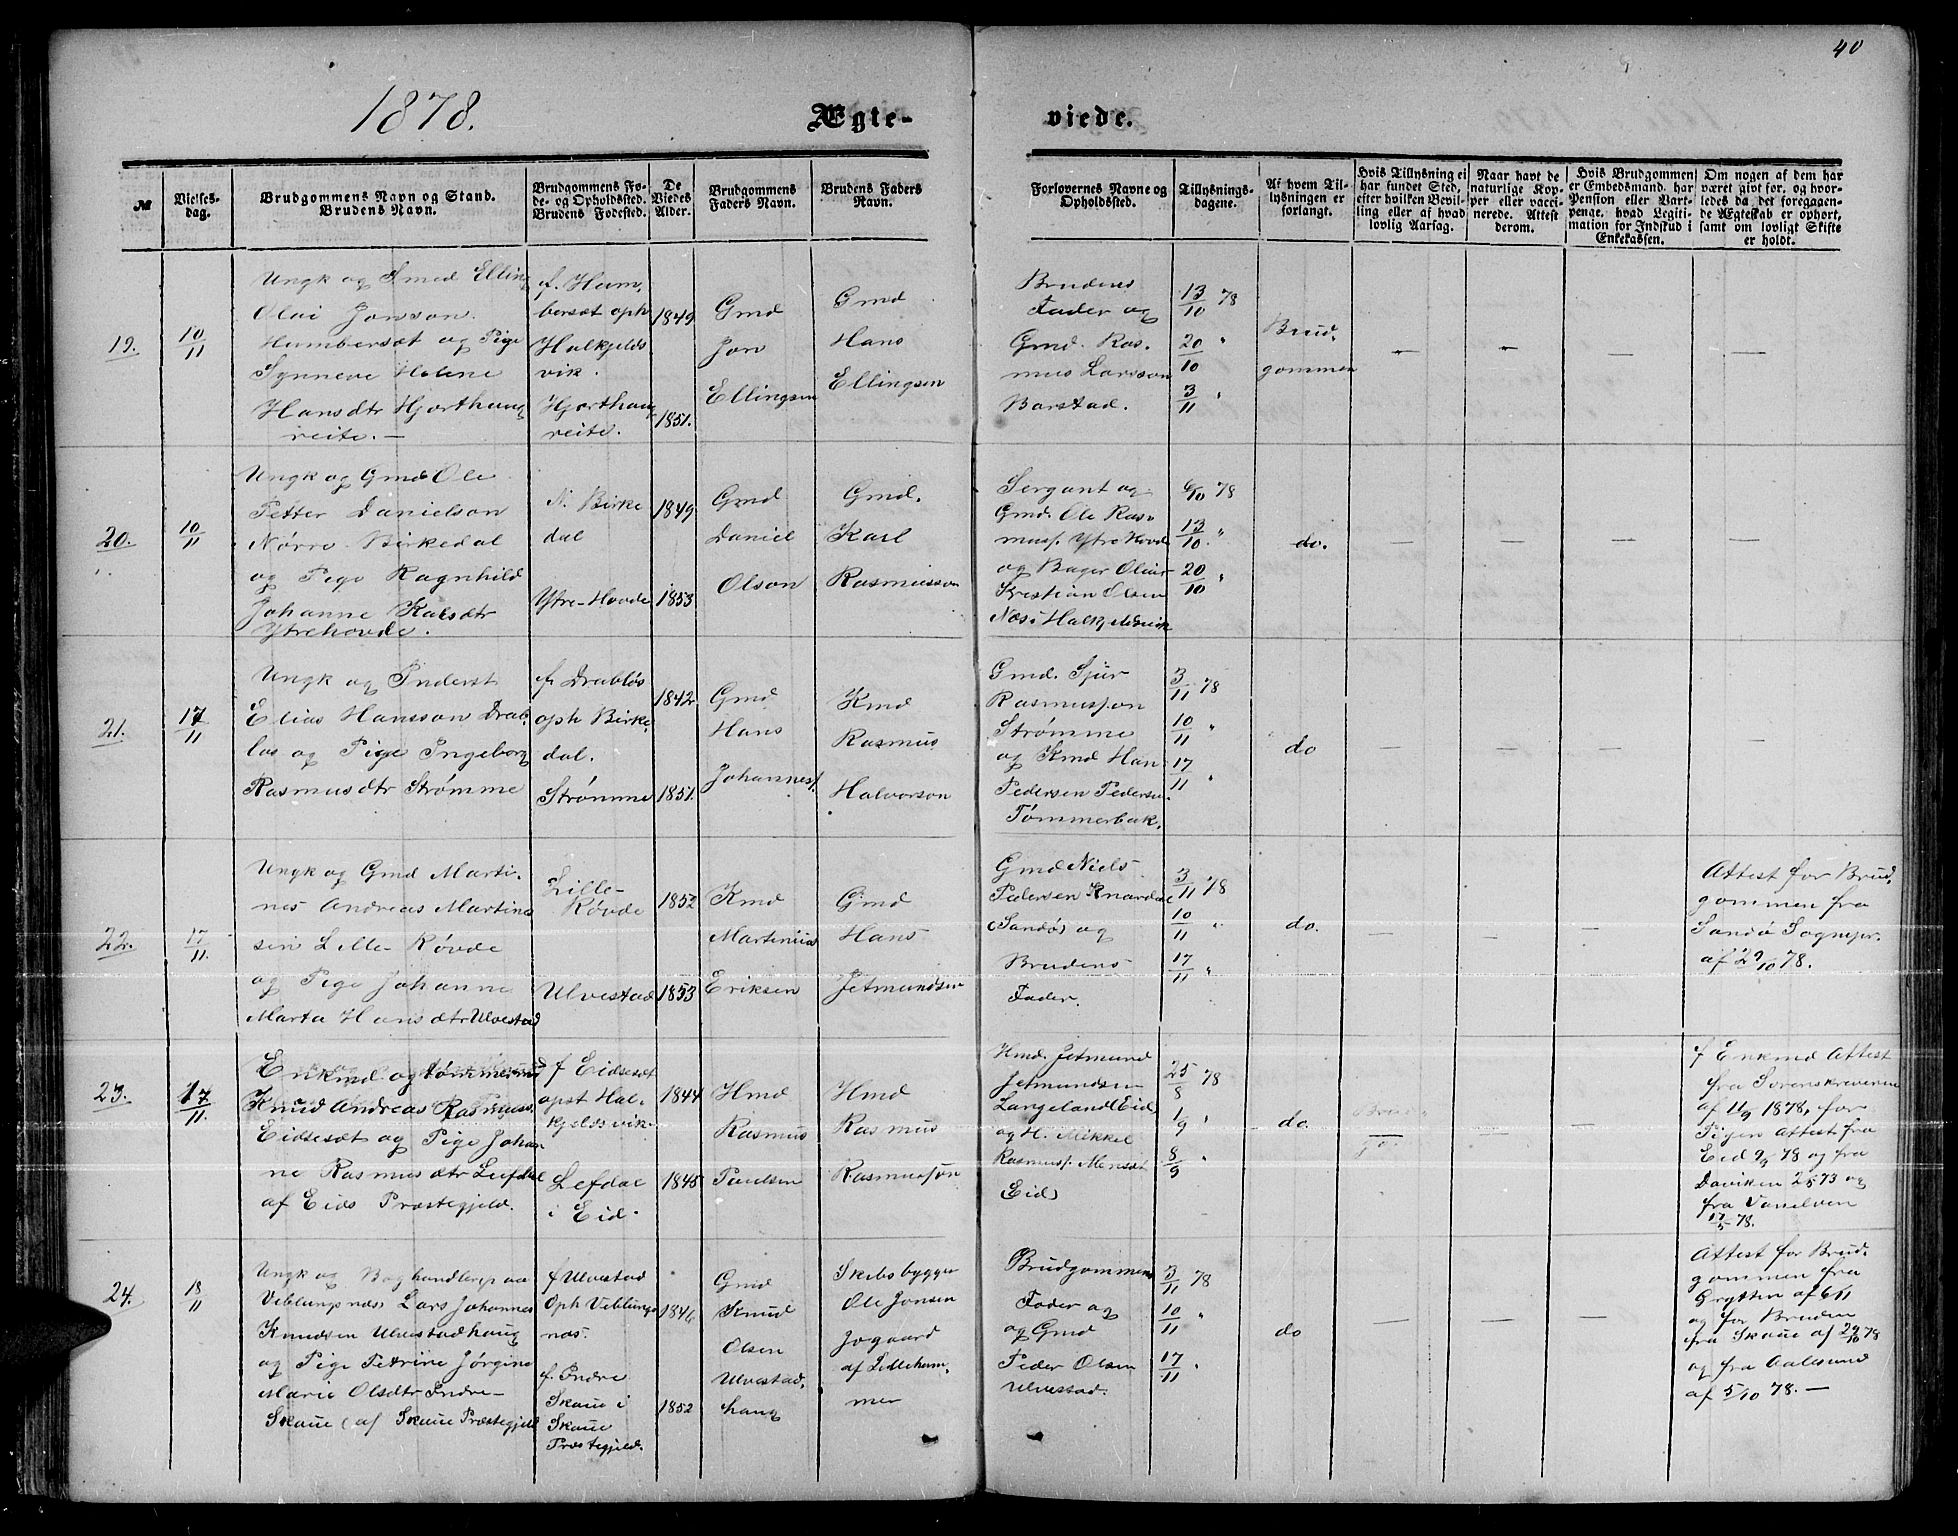 40
1878.
Ægte-
viede.
№
Vielses-
dag.
Brudgommens Navn og Stand.
Brudens Navn.
Brudgommens Fø-
de- og Opholdssted.
Brudens Fødested.
De
Viedes
Alder.
Brudgommens
Faders Navn.
Brudens Faders
Navn.
Forlovernes Navne og
Opholdssted.
Tillysnings-
dagene.
Af hvem Til-
lysningen er
forlangt.
Hvis Tillysning ei
har fundet Sted,
efter hvilken Bevil-
ling eller af hvad
lovlig Aarsag.
Naar havt de
naturlige Kop-
per eller vacci-
nerede. Attest
derom.
Hvis Brudgommen
er Embedsmand, har
Pension eller Vart-
penge, hvad Legiti-
mation for Indskud i
Enkekassen.
Om nogen af dem har
været gift før, og hvor-
ledes da det foregaaen-
de Ægteskab er ophørt,
samt om lovligt Skifte
er holdt.
19.
10/11
Ungk og Smed Elling
Olai Jonson
Humbersæt og Pige
Synneve Helene
Hansdtr Hjorthaug
reite. —
f. Hum,
bersæt oph
Halkjelds
vik.
Hjorthaug
reite.
1849
1851.
Gmd
Jon
Ellingsen
Gmd
Hans
Ellingsen
Brudens
Fader og
Gmd. Ras-
mus Larsson
Barstad.
13/10 78
20/10 "
3/11 "
Brud,
gommen
—
—
—
—
20.
10/11
Ungk og Gmd Ole
Petter Danielson
Nørre Birkedal
og Pige Ragnhild
Johanne Kalsdtr
Ytrehovde.
N. Birke
dal
Ytre-Hovde
1849
1853
Gmd
Daniel
Olson
Gmd.
Karl
Rasmusson
Sergant og
Gmd. Ole Ras-
mus. Ytre Hovde
og Bager
Kristian Olsen
Næs i
6/10 78
13/10 "
20/10 "
do.
—
—
—
—
21.
17/11
Ungk og Inderst
Elias Hansson Drab,
løs og Pige Ingeborg
Rasmusdtr Strømme
f. Drabløs
oph Birke,
dal.
Strømme
1842
1851.
Gmd
Hans
Johannes.
Kmd
Rasmus
Halvorson
Gmd. Sjur
Rasmusson
Strømme
og Kmd Han
Pedersen Pederse.
Tømmerbak.
3/11 78
10/11 "
17/11 "
do
—
—
—
—
22.
17/11.
Ungk og Gmd Marti-
nes Andreas Martine
sen Lille-Røvde
og Pige Johanne
Marta Hansdtr Ulvestad
Lille-
Røvde
Ulvestad
1852
1853
Kmd
Martinus
Eriksen
Gmd
Hans
Jetmundsen
Gmd Niels
Pedersen Knardal
(Sandø) og
Brudens
Fader.
3/11 78
10/11 "
17/11 "
do.
—
—
—
Attest for Brud,
gommen fra
Sandø Sognepr.
af 29/10 78.
23.
17/11.
Enkmd og tømmermd
Knud Andreas Rasmuss.
Eidsesæt og Pige Johan
ne Rasmusdtr Lefdal
af Eids Præstegjeld.
f Eidsesæt
opst Hal-
kjeldsvik
Lefdal
i Eid.
1844
1845
Hmd
Rasmus
Paulsen
Hmd
Rasmus
Rasmusson
Hmd. Jetmund
Jetmundsen
Langeland (Eid)
og H. Mikkel
Rasmus.
(Eid)
25/8 78
1/9 "
8/9 "
do
—
—
f Enkmd Attest
fra Sorenskriveren
af 11/9 1878, for
Pigen Attest fra
Eid 9/9 78 og fra
Daviken 73 og
fra Vanelven
78.
24.
18/11
Ungk og Boghandler paa
Veblungsnæs Lars Johannes
Knudsen Ulvestadhaug
og Pige Petrine Jørgine
Marie Olsdtr Indre-
Skaue (af Skaue Præstegjeld
f Ulvestad
Oph Veblungs
næs.
f. Indre
Skaue i
Skaue
Præstegjeld.
1846
1852
Gmd
Knud
Olsen
Ulvestad,
haug
Skibsbygger
Ole Jonsen
Jogaard
af Lilleham,
mer
Brudgommens
Fader og
og Gmd
Peder Olsen
Ulvestad.
3/11 78
10/11 "
17/11 "
do
—
—
—
Attest for Brud,
gommen fra
Grytten af 6/11
og for Bruden
fra Skaue af 29/10 78
og fra Aalesund
af 5/10 78. —